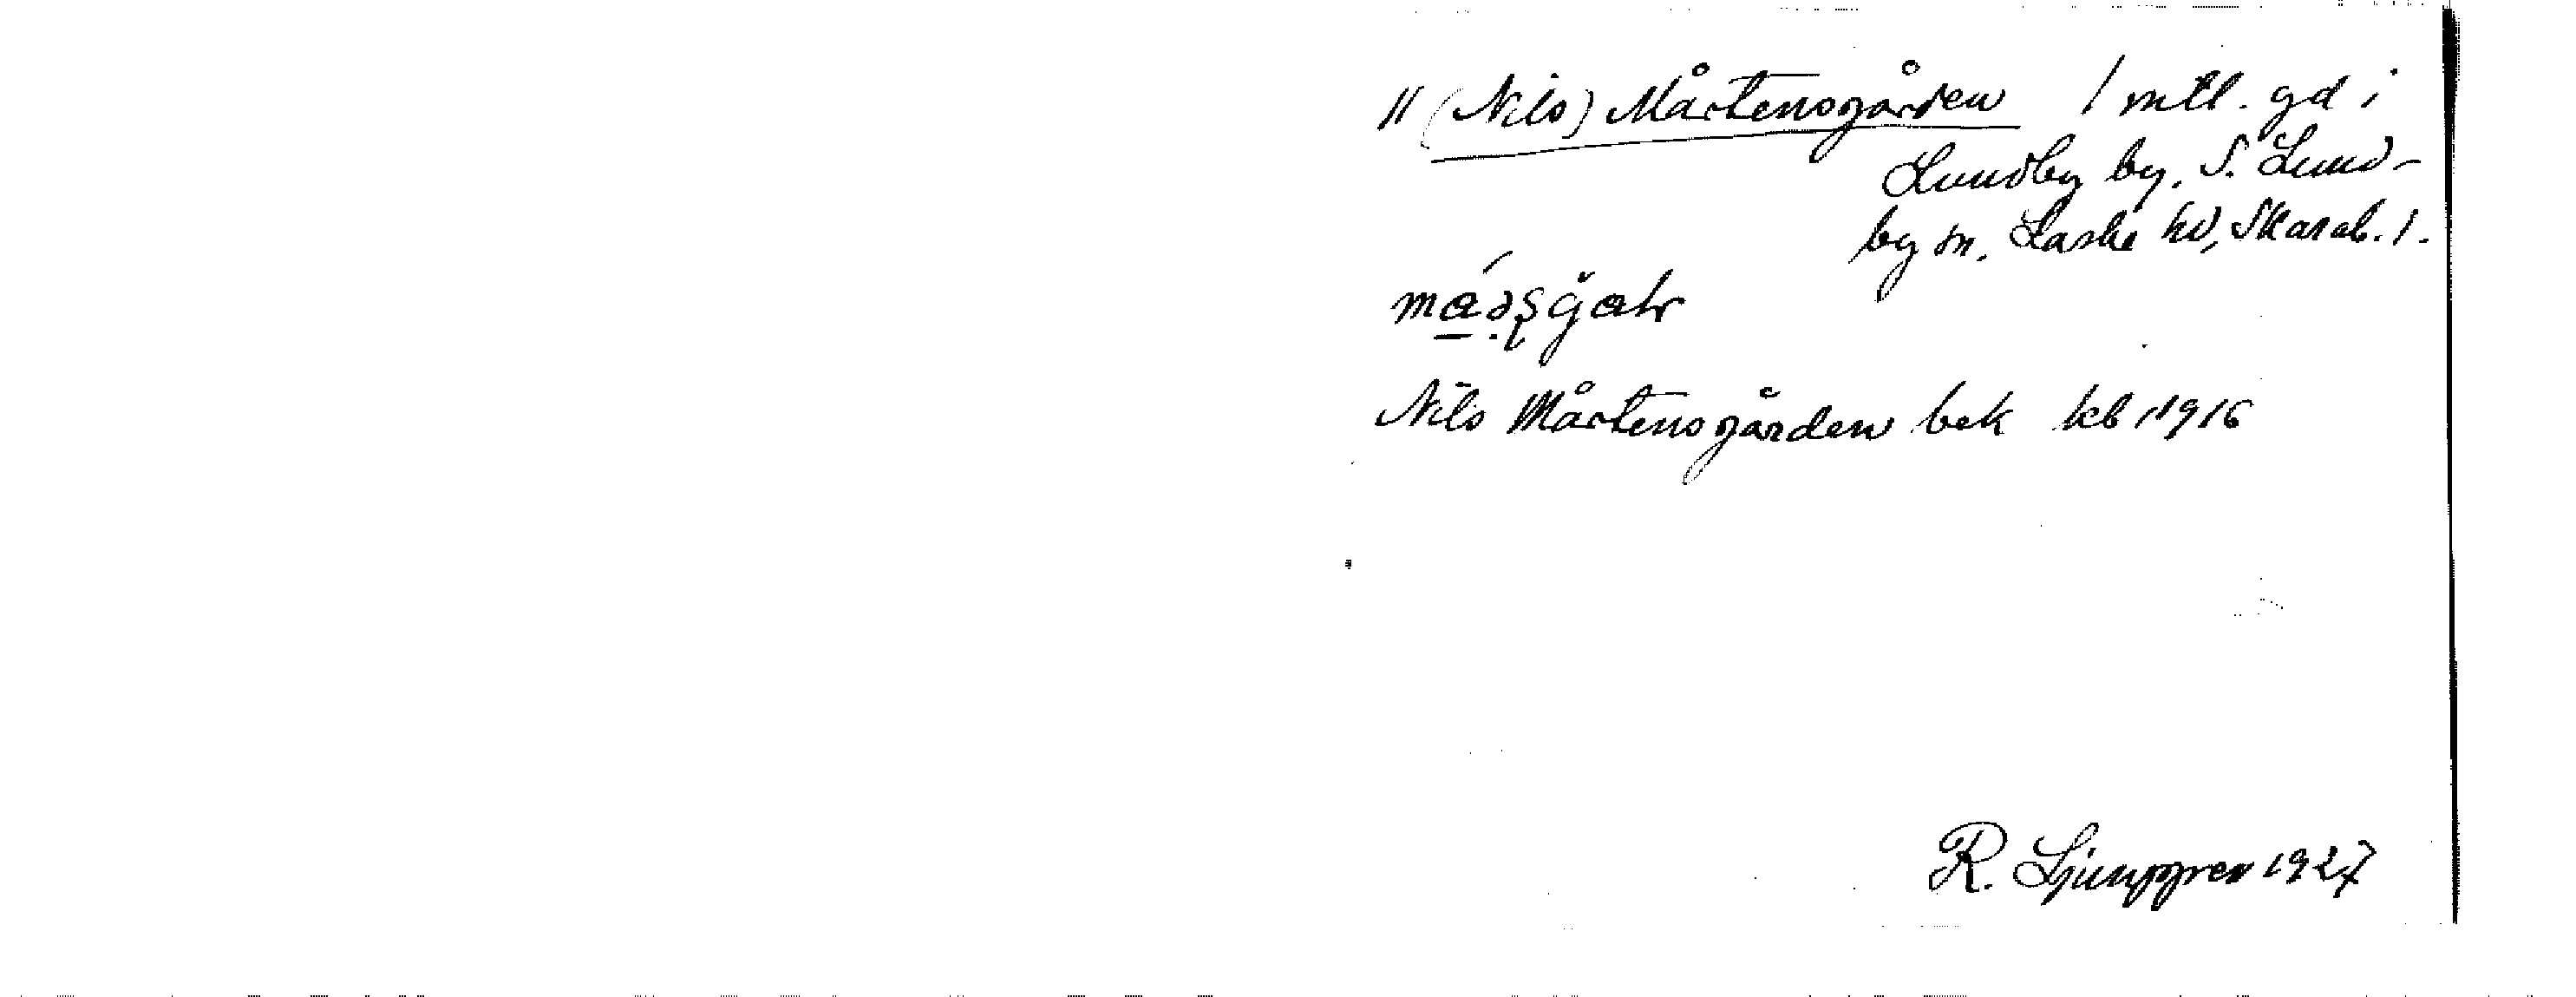 11 (Nils) Mårtensgården 1 mtl. gd i
Lundby by, S. Lund-
by sn. Laske hd, Skarab. l.
Nils Mårtensgården bek kb 1916
R. Ljunggren 1927